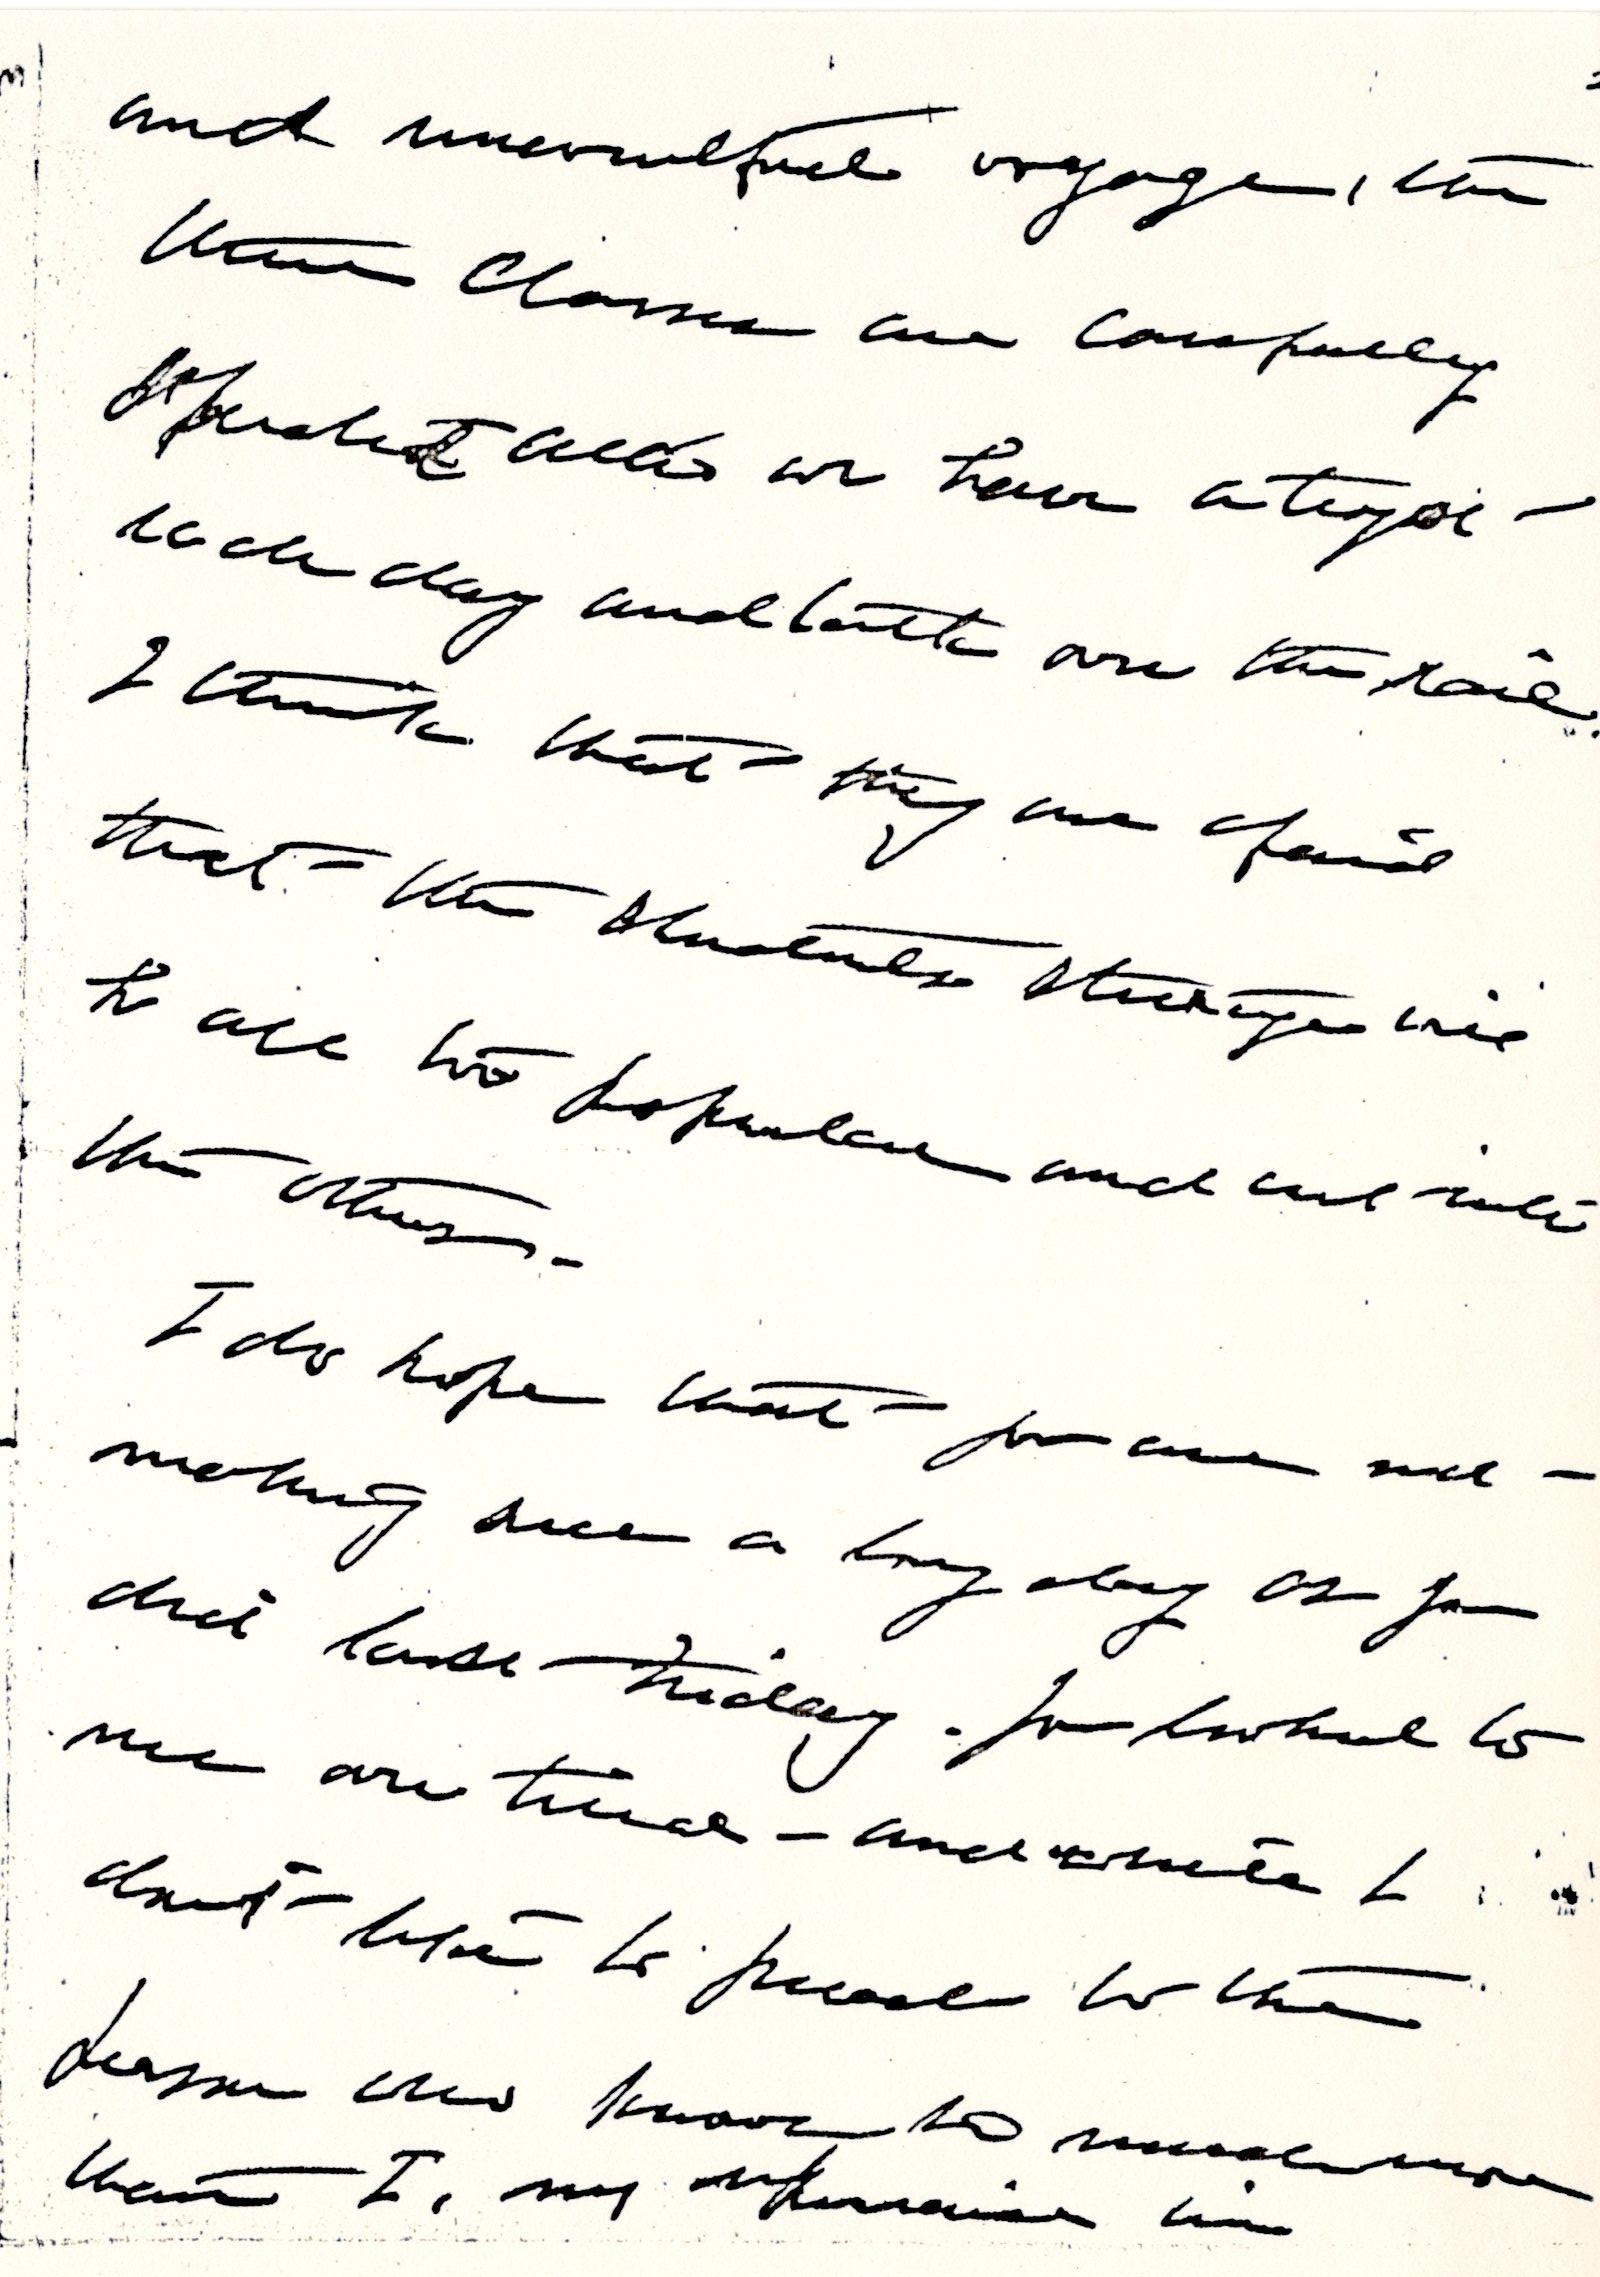 and uneventful voyage, the
three classes are carefully
separated and we have a typo-
each day and look over the rail.
I think that they are afraid
that the students steerage will
be all too popular and cut into
the others. -
I do hope that you are not -
making such a long day as you
did last Friday. You looked to
me over tired - and while I
don't like to preach to the
person who knows so much more
than I, my experience in